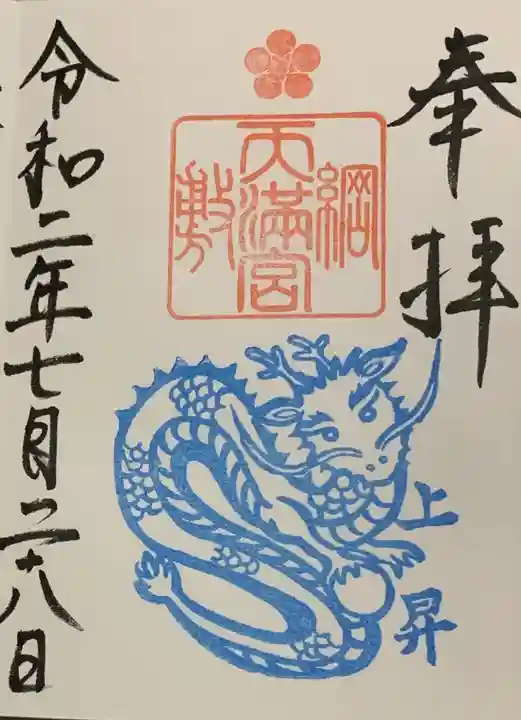 奉拝
綱敷天満宮
上昇
令和二年七月二十八日